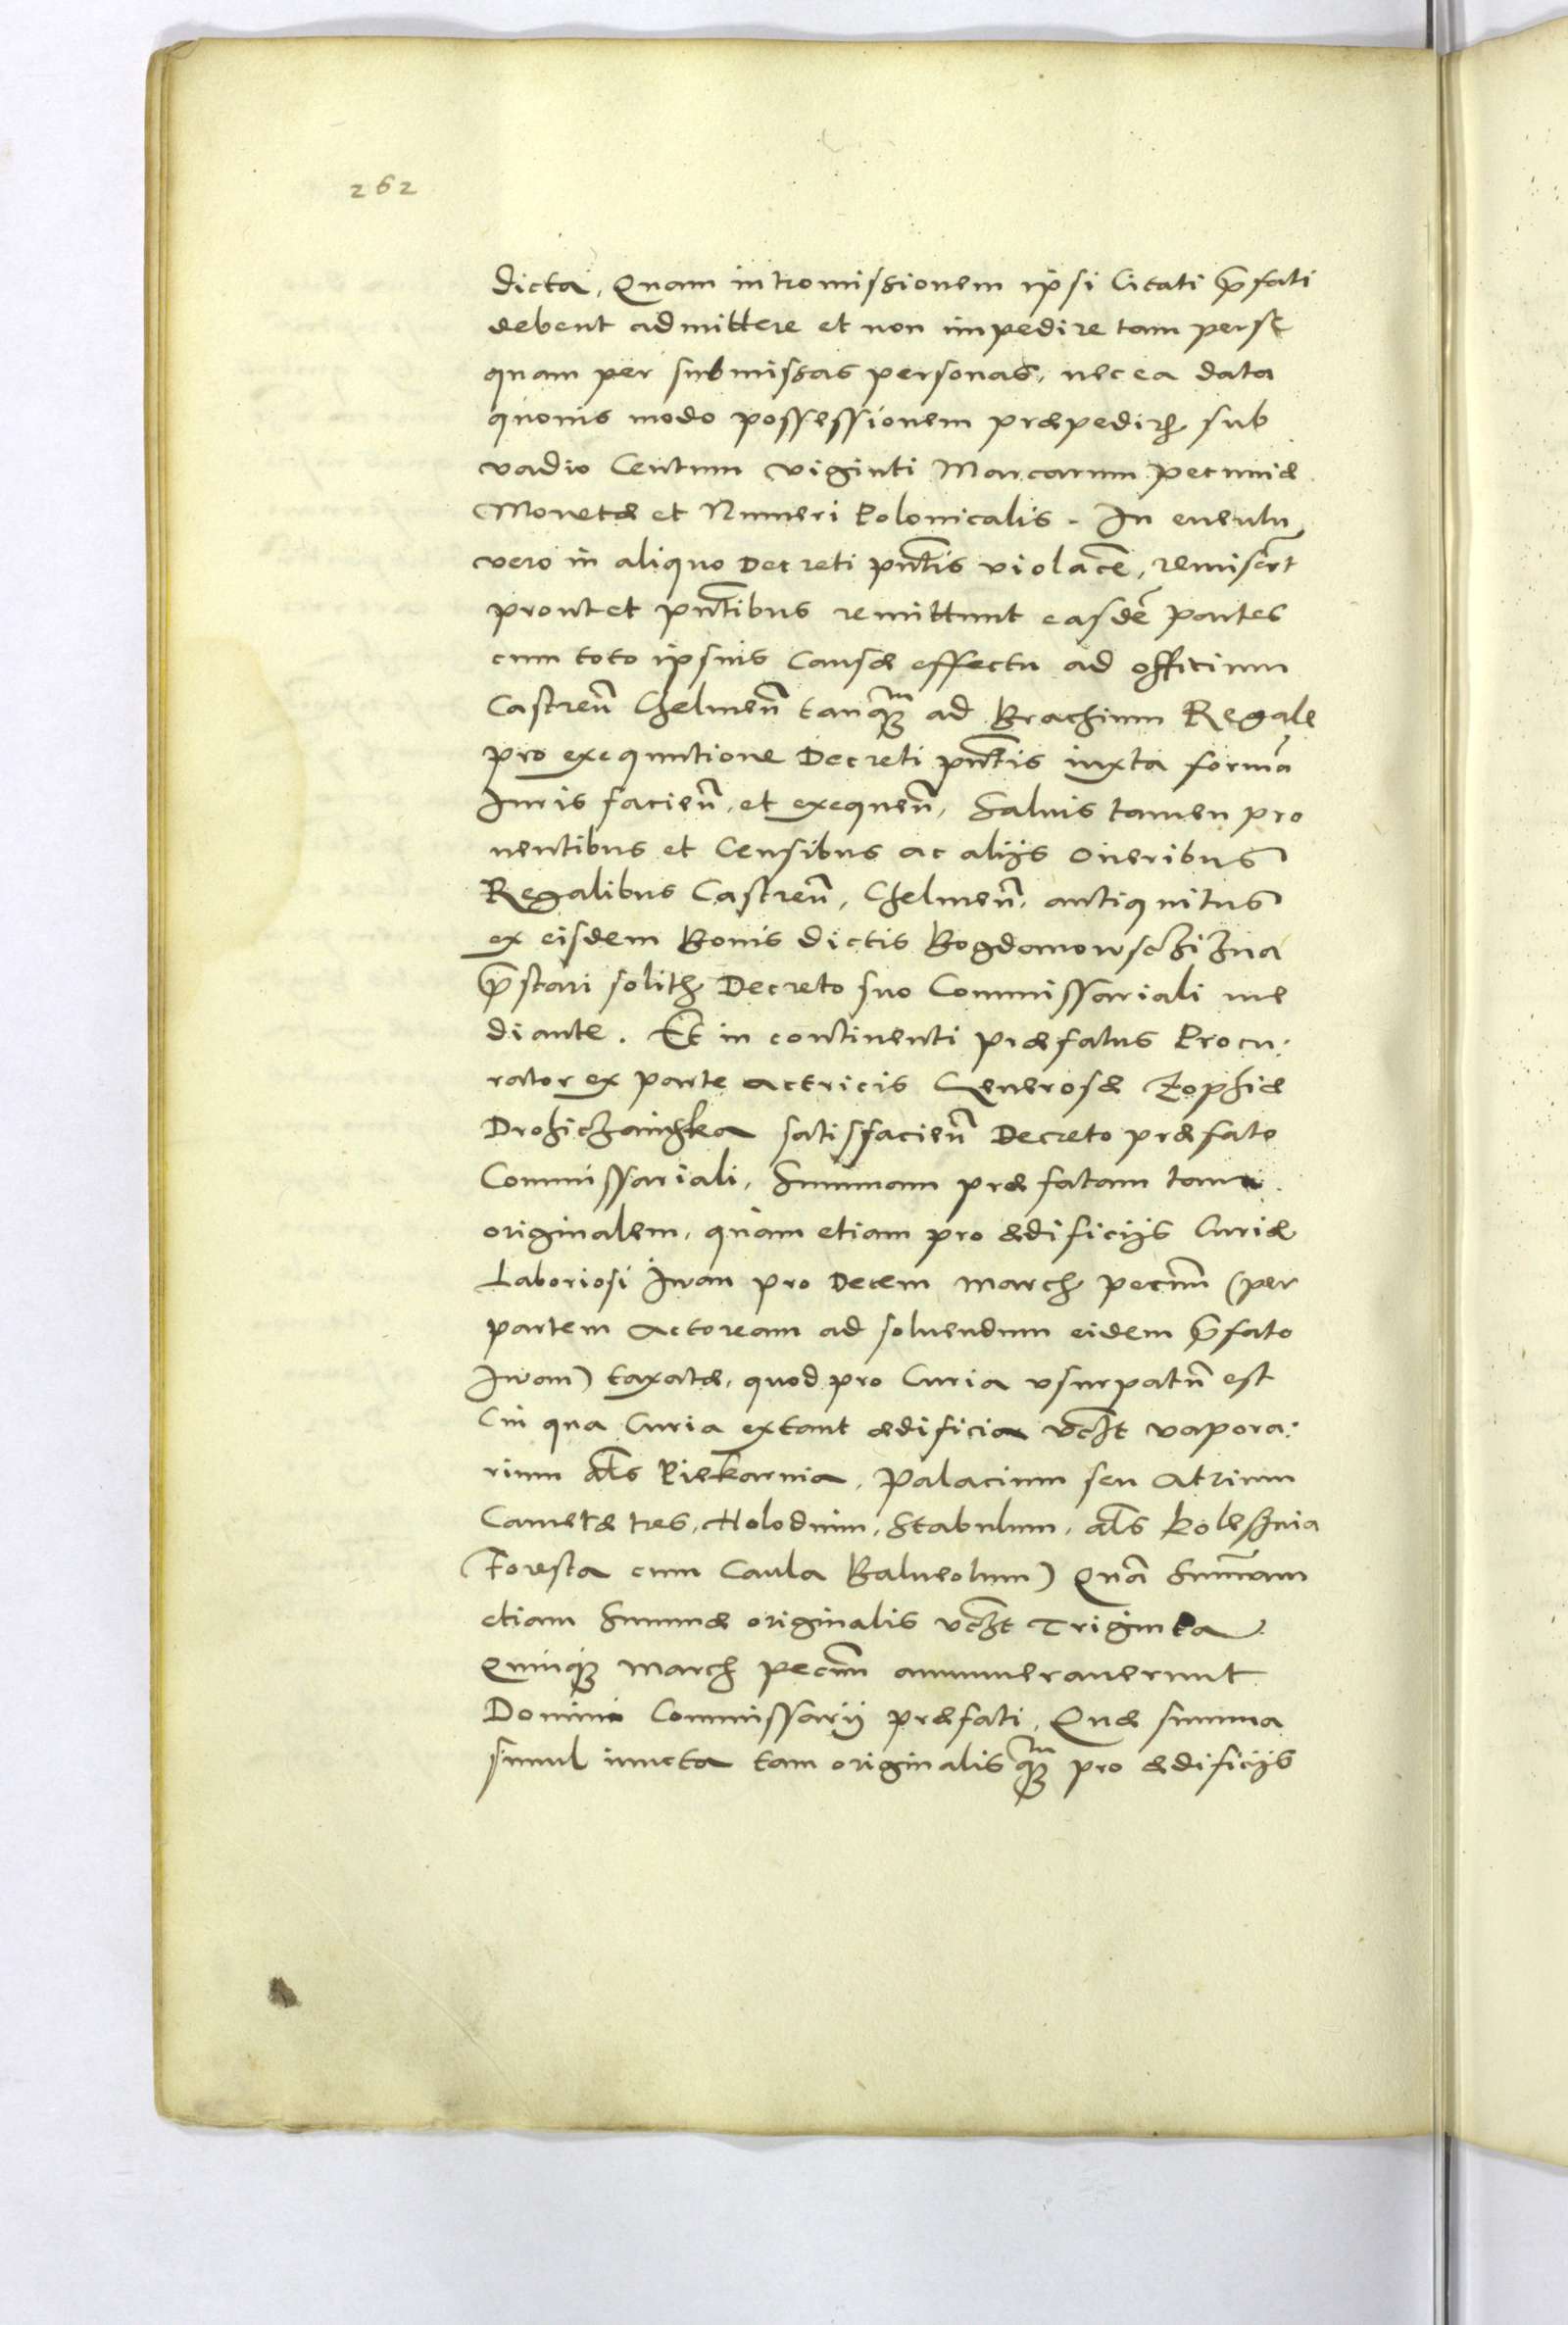 262
dicta, Quam intromissionem ipsi Citati p̄fati
debent admittere et non impedire tam perse
quam per submissas personas, nec ea data
quouis modo possessionem præpedire sub
vadio Centum viginti Marcarum pecuniæ
Monetæ et Numeri Polonicalis. In euentu
vero in aliquo Decreti pn̄tis violac̄e, remisert̄
prout et pn̄tibus remittunt easdē partes
cum toto ipsius Causæ effectu ad officium
Castreñ Chelmeñ tanqꝫm ad Brachium Regale
pro exequutione Decreti pn̄tis iuxta formā
Iuris facieñ, et exequeñ, Saluis tamen pro
uentibus et Censibus ac alijs Oneribus
Regalibus Castreñ, Chelmeñ, antiquitus
ex eisdem Bonis dictis Bogdanowsczizna
p̄stari solitꝫ Decreto suo Commissariali me
diante. Et in continenti præfatus Procu:
rator ex parte actricis Generosæ Zophiæ
Drohiczainska satisfacieñ Decreto præfato
Commissariali, Summam præfatam tam
originalem, quam etiam pro ædificijs Curiæ
Laboriosi Iwan pro Decem march pecuñ (per
partem Actoream ad soluendum eidem p̄fato
Iwan) taxatæ, quod pro Curia vsurpatū est
(in qua Curia extant ædificia vcꝫt vapora:
rium al̄s Piekarnia, Palacium seu Atrium
Cameræ tres, Holodnim, Stabulum, al̄s kolesznia
Foresta cum Caula Balneolum) Quā Sum̄am
etiam Summæ originalis vcꝫt Triginta
Quinqꝫ march pecuñ annumerauerunt
Domini Commissarij præfati, Quæ summa
simul iuncta tam originalis qꝫm pro ædificijs